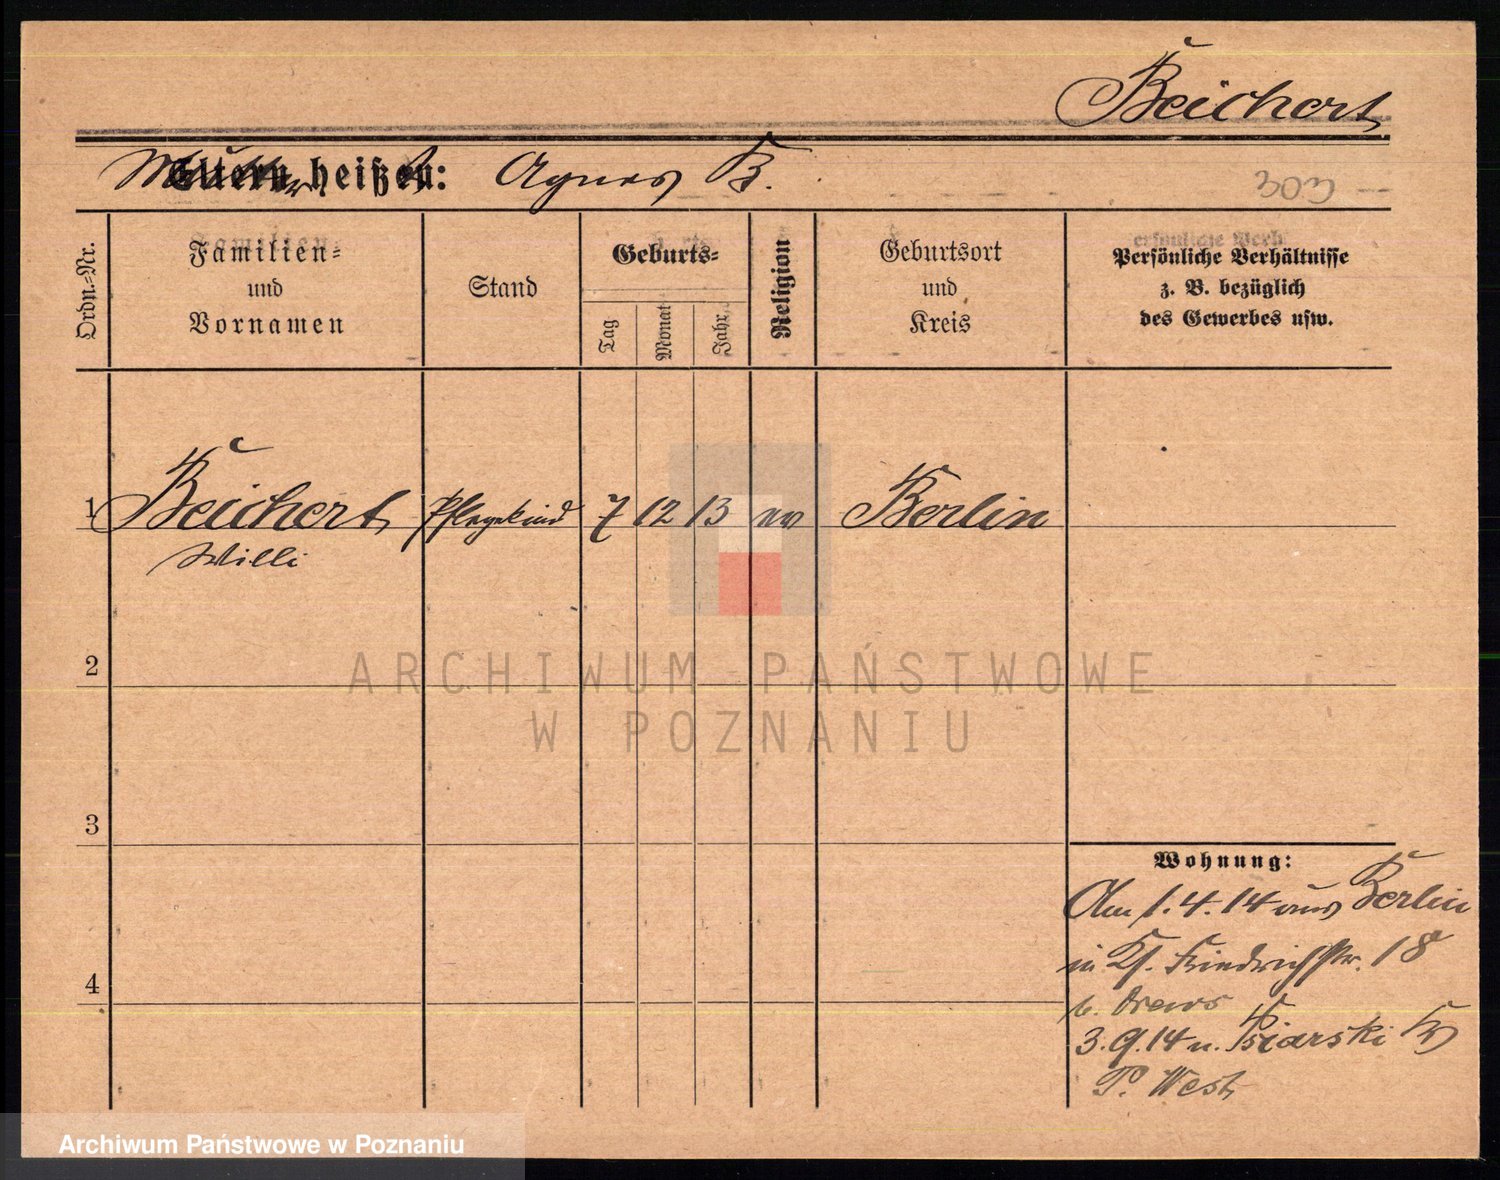 Beichert
Mutter heißt: Agnes B.
Ordn.-Nr.
Familien-
und
Vornamen
Stand
Geburts-
Tag
Monat
Jahr
Religion
Geburtsort
und
Kreis
Persönliche Verhältnisse
z. B. bezüglich
des Gewerbes usw.
1 Beichert Pflegekind 7 12 13 ev Berlin
Willi
2
3
4
Wohnung:
Am 1.4.14 aus Berlin
in Friedrichstr. 18
b. Drews
3.9.14 n. Psiarski
P. West
ARCHIWUM PAŃSTWOWE
W POZNANIU
Archiwum Państwowe w Poznaniu